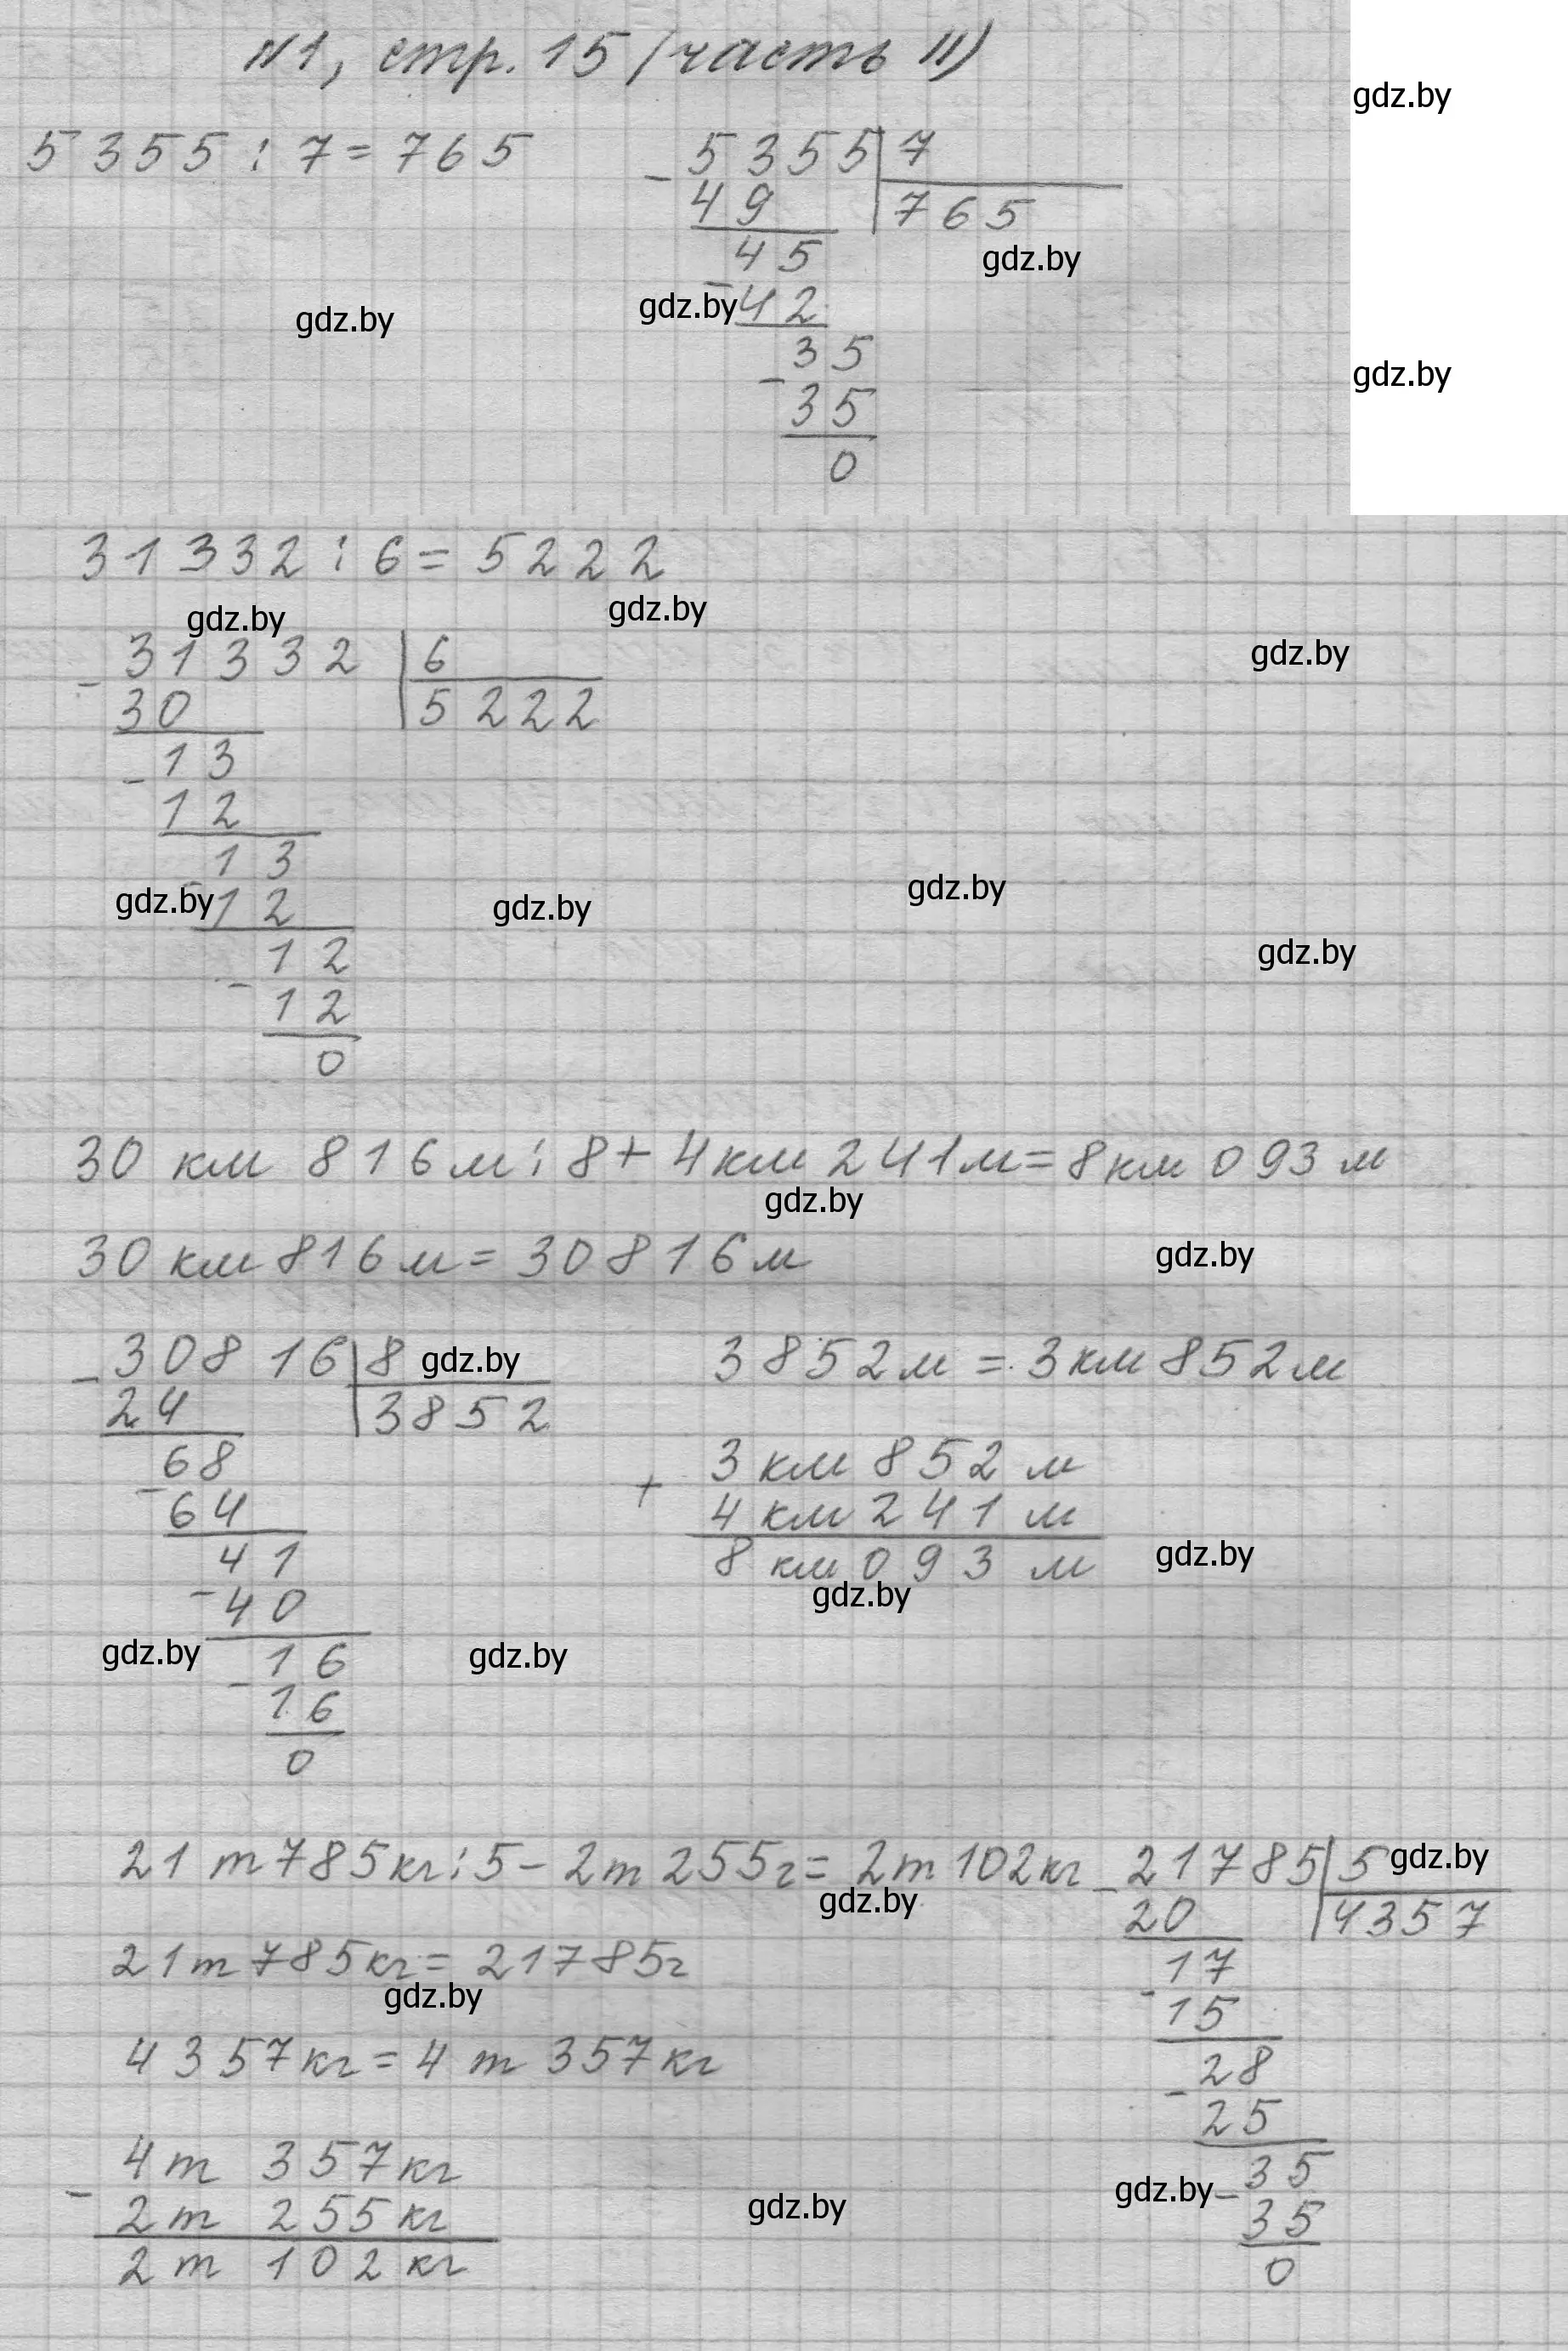 №1, стр. 15 (часть II)
gdz.by
5355 : 7 = 765
5355 | 7
- 49
765
45
gdz.by
gdz.by
gdz.by
- 42
35
gdz.by
- 35
0
31332 : 6 = 5222
gdz.by
gdz.by
gdz.by
31332 | 6
- 30
5222
- 13
12
13
gdz.by
gdz.by
gdz.by
- 12
gdz.by
12
- 12
0
30 км 816 м : 8 + 4 км 241 м = 8 км 093 м
gdz.by
30 км 816 м = 30816 м
gdz.by
- 30816 | 8
gdz.by
24
3852
68
- 64
41
- 40
gdz.by
gdz.by
16
- 16
0
3852 м = 3 км 852 м
3 км 852 м
+ 4 км 241 м
8 км 093 м
gdz.by
gdz.by
21 т 785 кг : 5 - 2 т 255 г = 2 т 102 кг
gdz.by
21 т 785 кг = 21785 г
gdz.by
4357 кг = 4 т 357 кг
4 т 357 кг
- 2 т 255 кг
2 т 102 кг
gdz.by
- 21785 | 5
gdz.by
20
4357
17
- 15
28
- 25
gdz.by
35
- 35
0